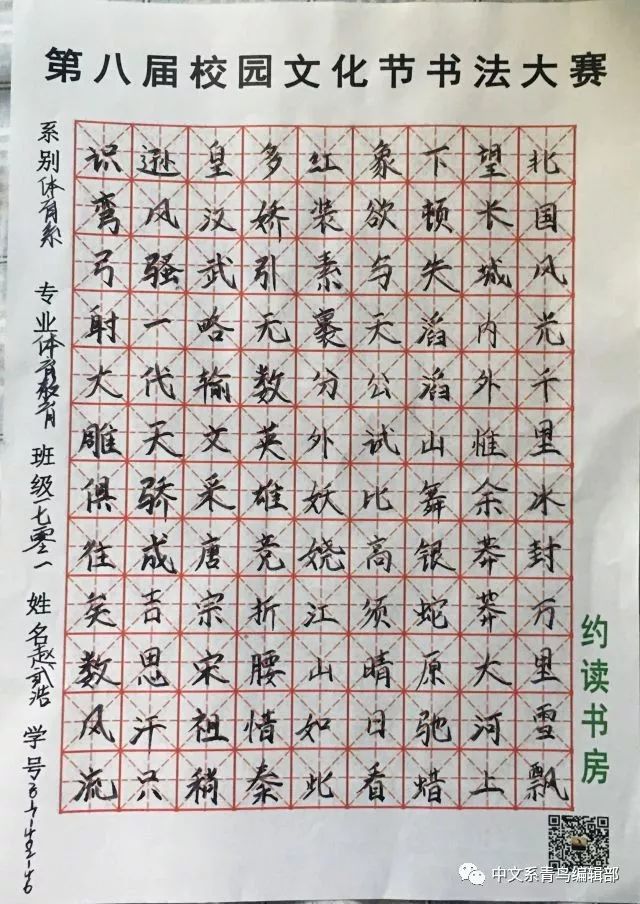 第八届校园文化节书法大赛
北国风光千里冰封万里雪飘
望长城内外惟余莽莽大河上
下顿失滔滔山舞银蛇原驰蜡
象欲与天公试比高须晴日看
红装素裹分外妖娆江山如此
多娇引无数英雄竞折腰惜秦
皇汉武略输文采唐宗宋祖稍
逊风骚一代天骄成吉思汗只
识弯弓射大雕俱往矣数风流
系别体育系 专业体育教育 班级一七零一 姓名赵浩 学号
约读书房
中文系青鸟编辑部